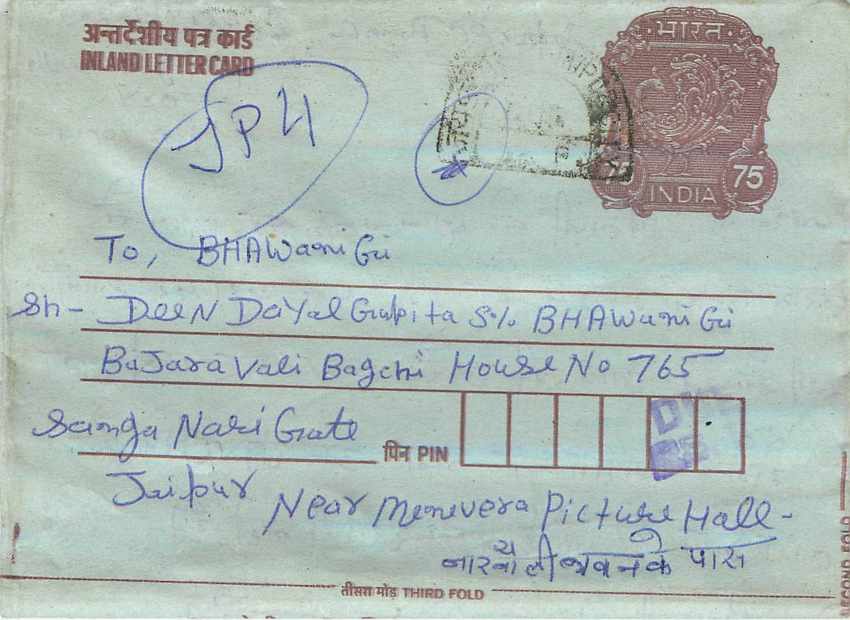 अन्तर्देशीय पत्र कार्ड
INLAND LETTER CARD
भारत
75 75
INDIA
JPH
To, BHAWani Gii
Sh- DeeN DaYal Gupita S/o BHAWani Gii
BaJara Vali Bagchi House No 765
Sanga Nari Gate
पिन PIN
Jaipur Near Menevera Picture Hall-
के पास
तीसरा मोड़ THIRD FOLD
SECOND FOLD